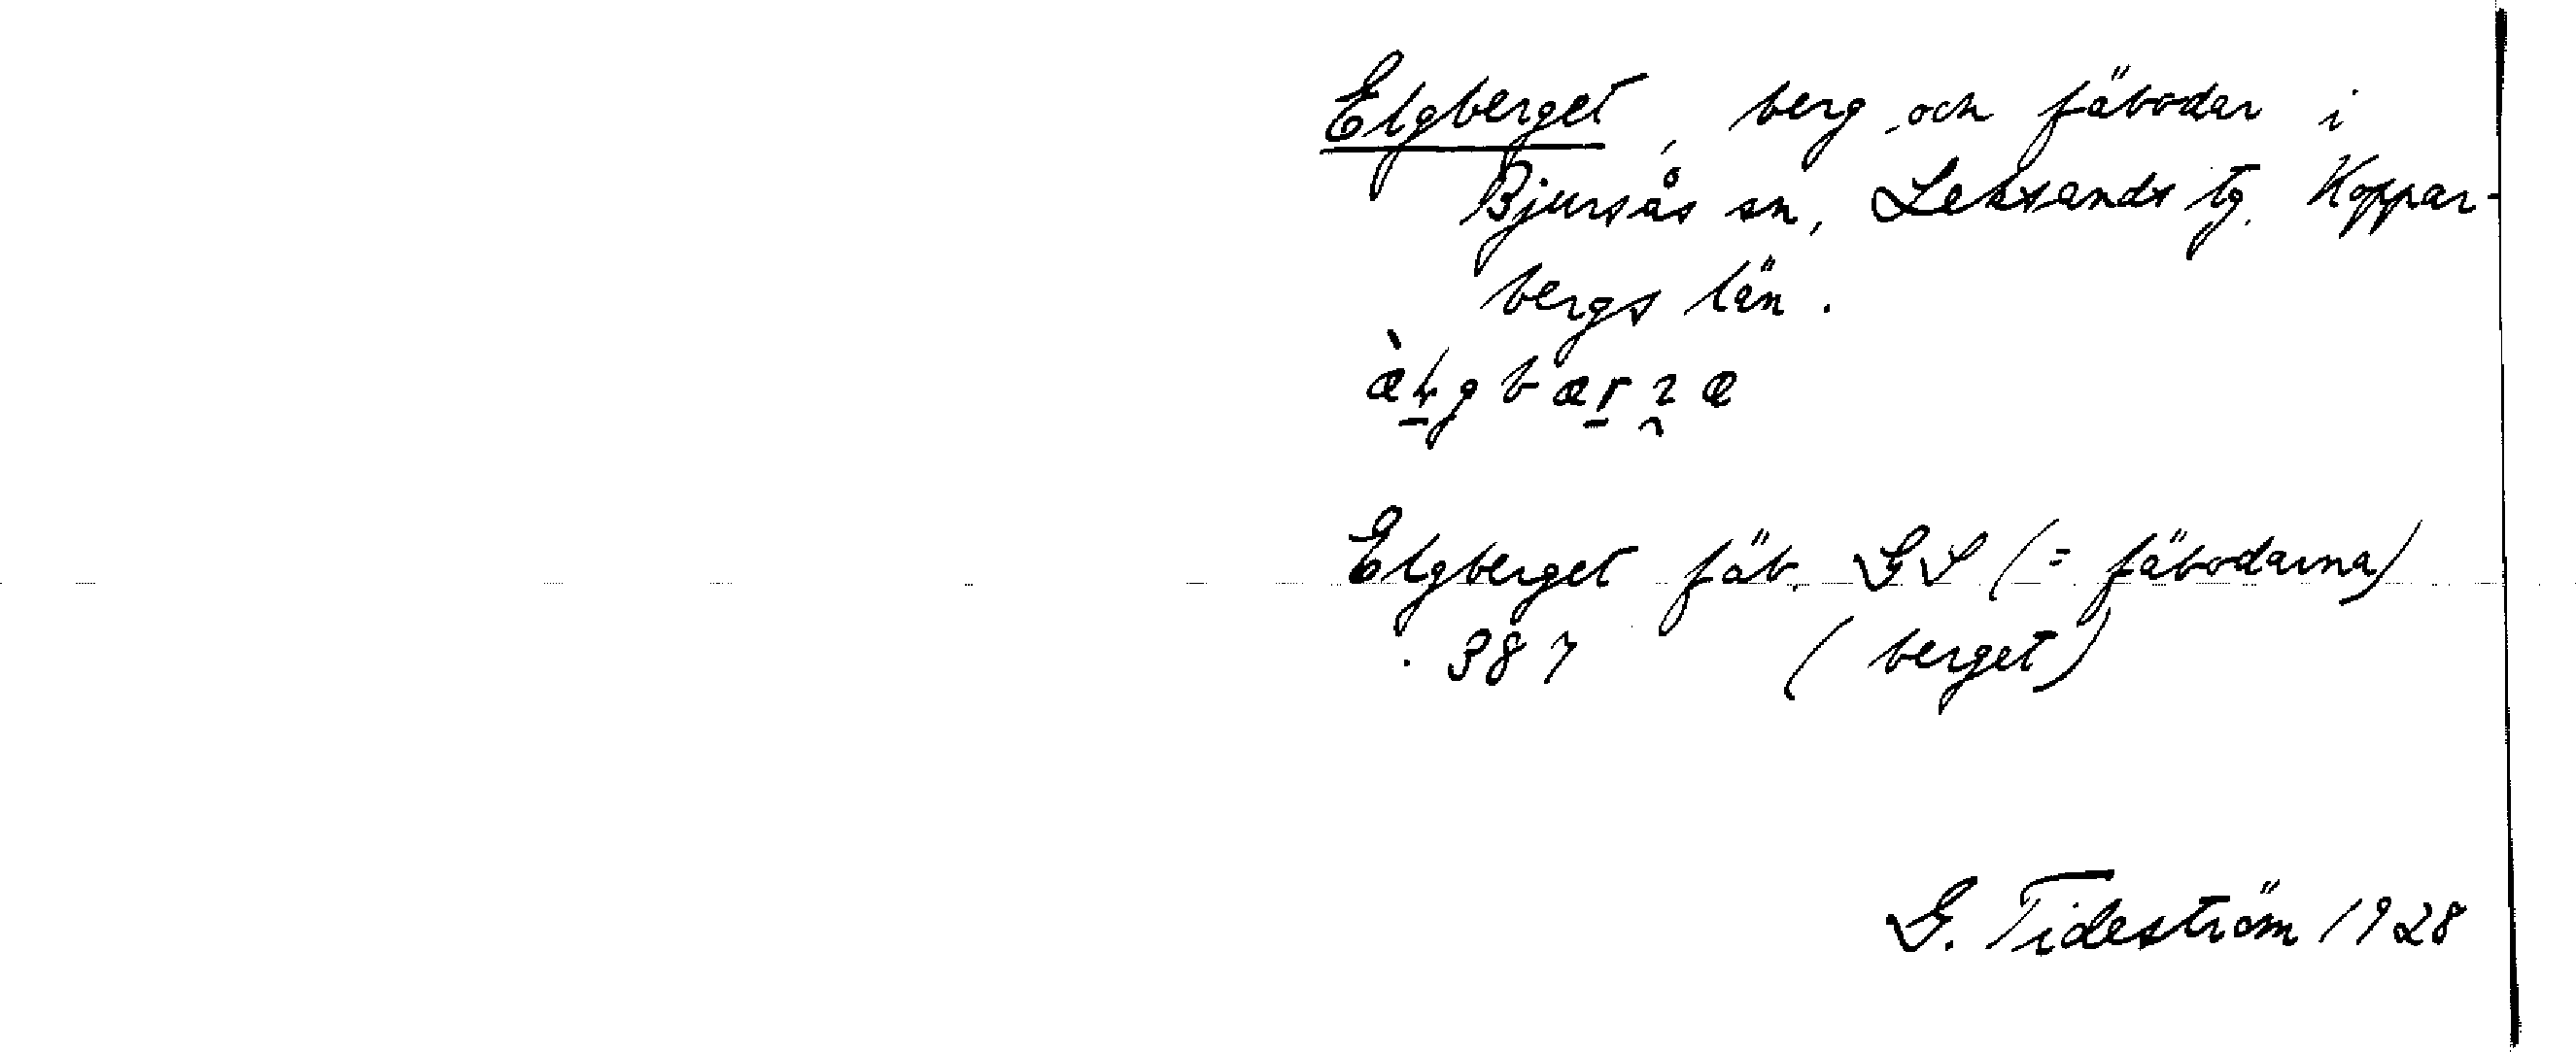 Elgberget, berg och fäbodar i
Bjursås sn, Leksands tg. Koppar-
bergs län.
Elgberget fäb. GS (= fäbodarna)
. 387 (berget)
G. Tideström 1928